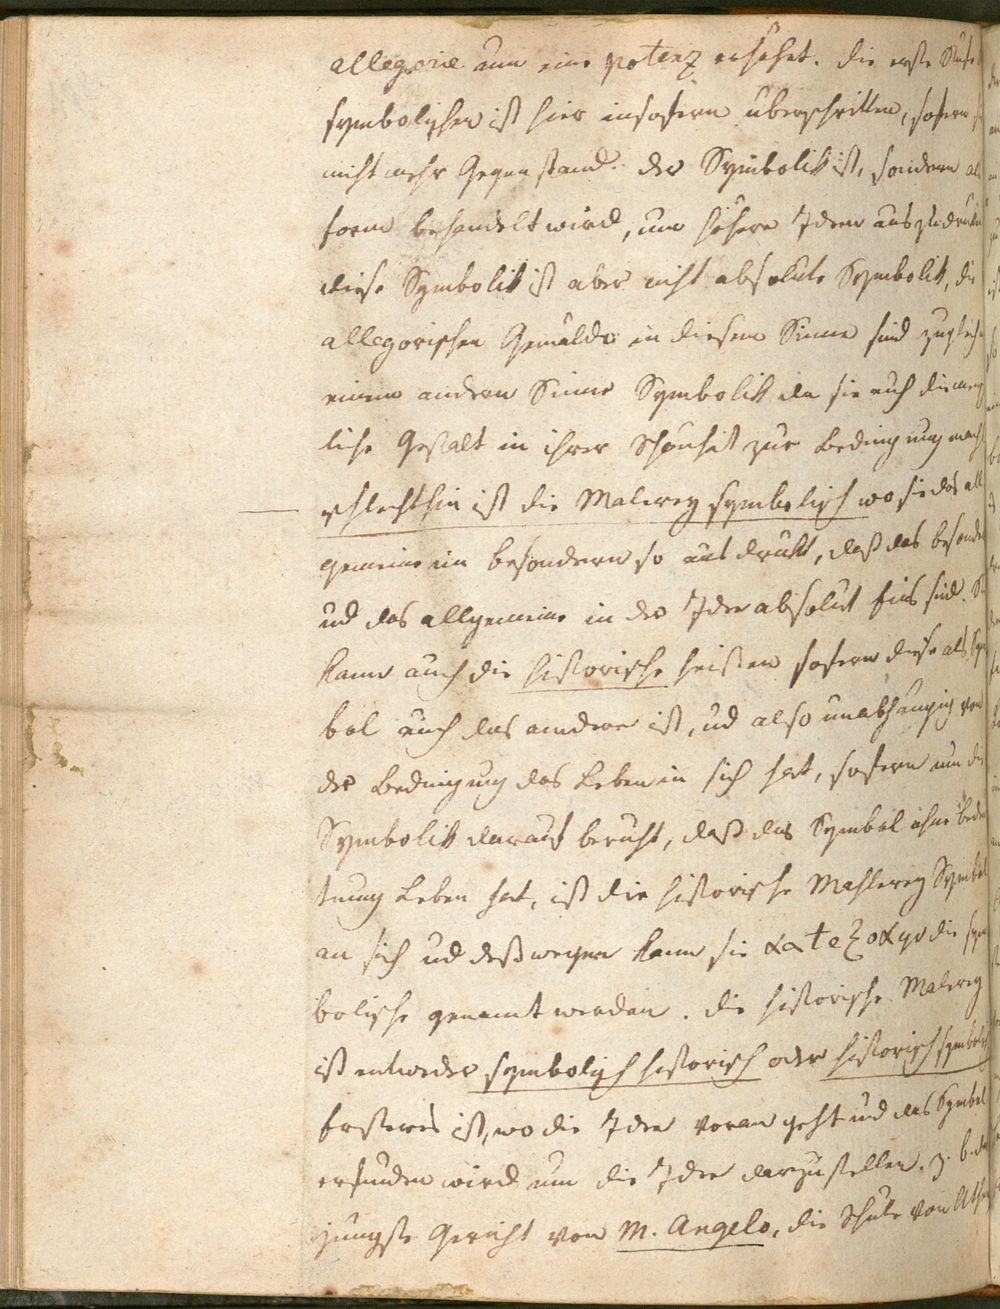 allegorie um eine potenz erhöhet. die erste Stufe
symbolischen ist hier insofern überschritten, sofern
nicht mehr Gegenstand der Symbolik ist, sondern al
form behandelt wird, um höhere Ideen auszudrüken
diese Symbolik ist aber nicht absolute Symbolik, die
allegorischen Gemälde in diesem Sinne sind zugleich
einem andern Sinne Symbolik da sie auch die mensch
liche Gestalt in ihrer Schönheit zur Bedingung mach
schlechthin ist die Malerey symbolisch wo sie das all
gemeine im besondern so ausdrükt, daß das besonde
und das allgemeine in der Idee absolut Eins sind. Si
kann auch die historische heißen sofern diese als Sym
bol auch das andere ist, und also unabhängig von
der Bedingung das Leben in sich hat, sofern nun die
Symbolik darauf beruht, daß das Symbol ohne bedeu
tung Leben hat, ist die historische Mahlerey Symbol
an sich und deßwegen kann sie die sym
bolische genannt werden. die historische Malerey
ist entweder symbolisch historisch oder historisch symbolisch
Ersteres ist, wo die Idee voran geht und das Symbol
erfunden wird um die Idee darzustellen. z. b. das
jüngste Gericht von M. Angelo, die Schule von Athe